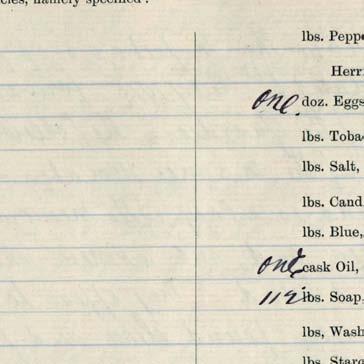 namely specified:
lbs. Pepp
Herr
one doz. Eggs
lbs. Toba
lbs. Salt,
lbs. Cand
lbs. Blue,
one cask Oil,
112 lbs. Soap,
lbs, Wash
lbs. Starc